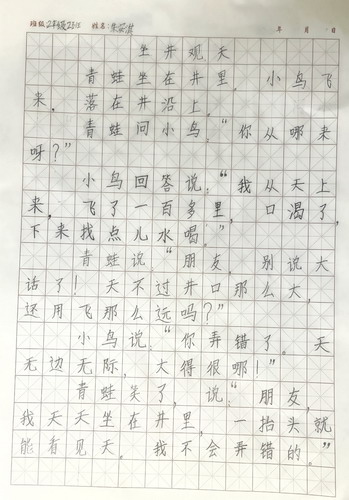 班级2年级25班 姓名: 年 月 日
坐井观天
青蛙坐在井里，小鸟飞
来，落在井沿上。
青蛙问小鸟：“你从哪来
呀？”
小鸟回答说：“我从天上
来，飞了一百多里，口渴了，
下来找点儿水喝。”
青蛙说“朋友，别说大
话了！天不过井口那么大，
还用飞那么远吗？”
小鸟说：“你弄错了。天
无边无际，大得很哪！”
青蛙笑了，说：“朋友，
我天天坐在井里，一抬头就
能看见天。我不会弄错的。”